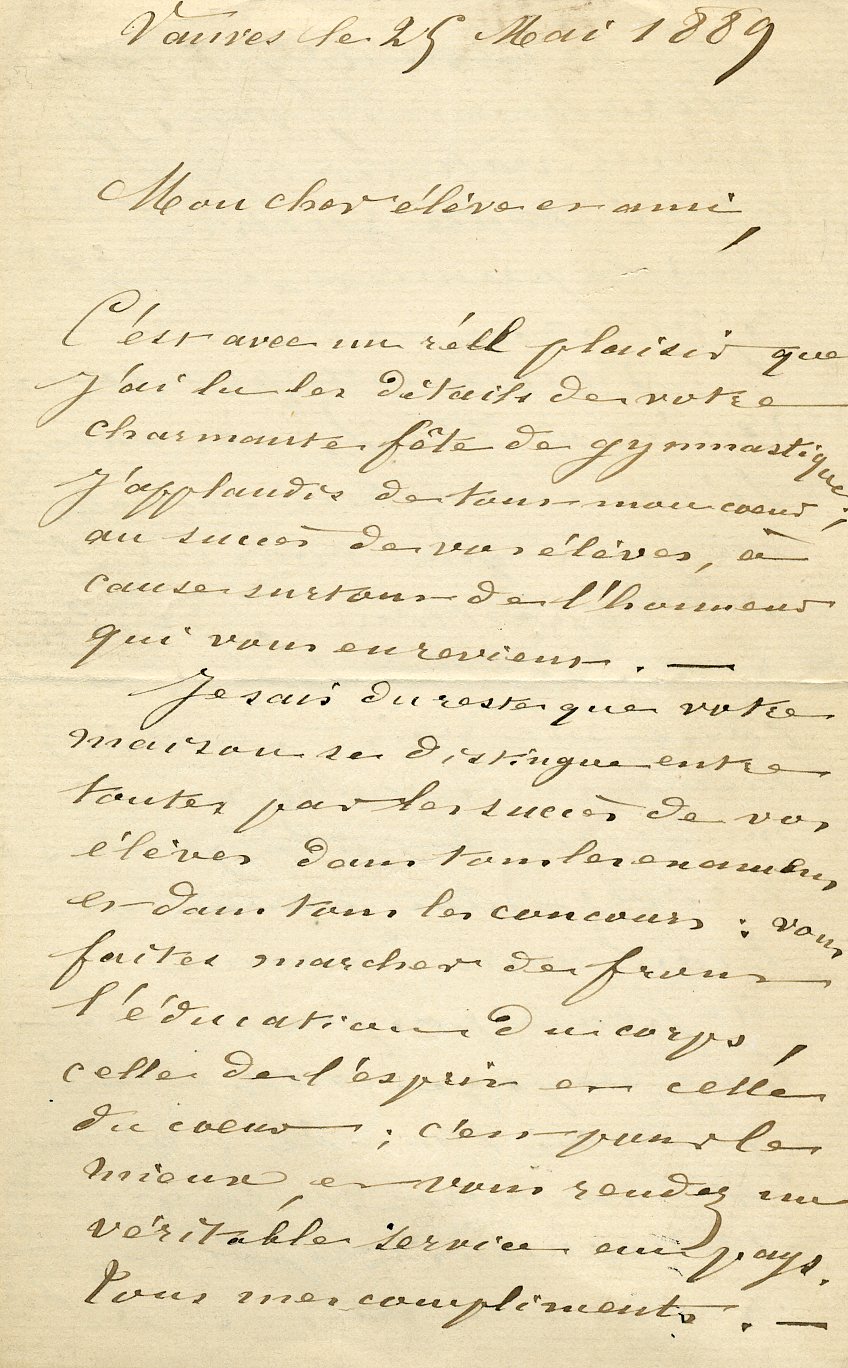 Vanves le 25 Mai 1889
Mon cher élève et ami,
C'est avec un réell plaisir que
j'ai lu les détails de votre
charmante fête de gymnastique;
J'applaudis de tout mon coeur,
au succès de vos élèves, à
cause surtout de l'honneur
qui vous en revient. —
Je sais du reste que votre
maison se distingue entre
toutes par les succès de vos
élèves dans tous les examens
et dans tous les concours : vous
faites marcher de front
l'éducation du corps,
celle de l'esprit et celle
du coeur ; c'est pour le
mieux, et vous rendez un
véritable service au pays.
Tous mes compliments. —